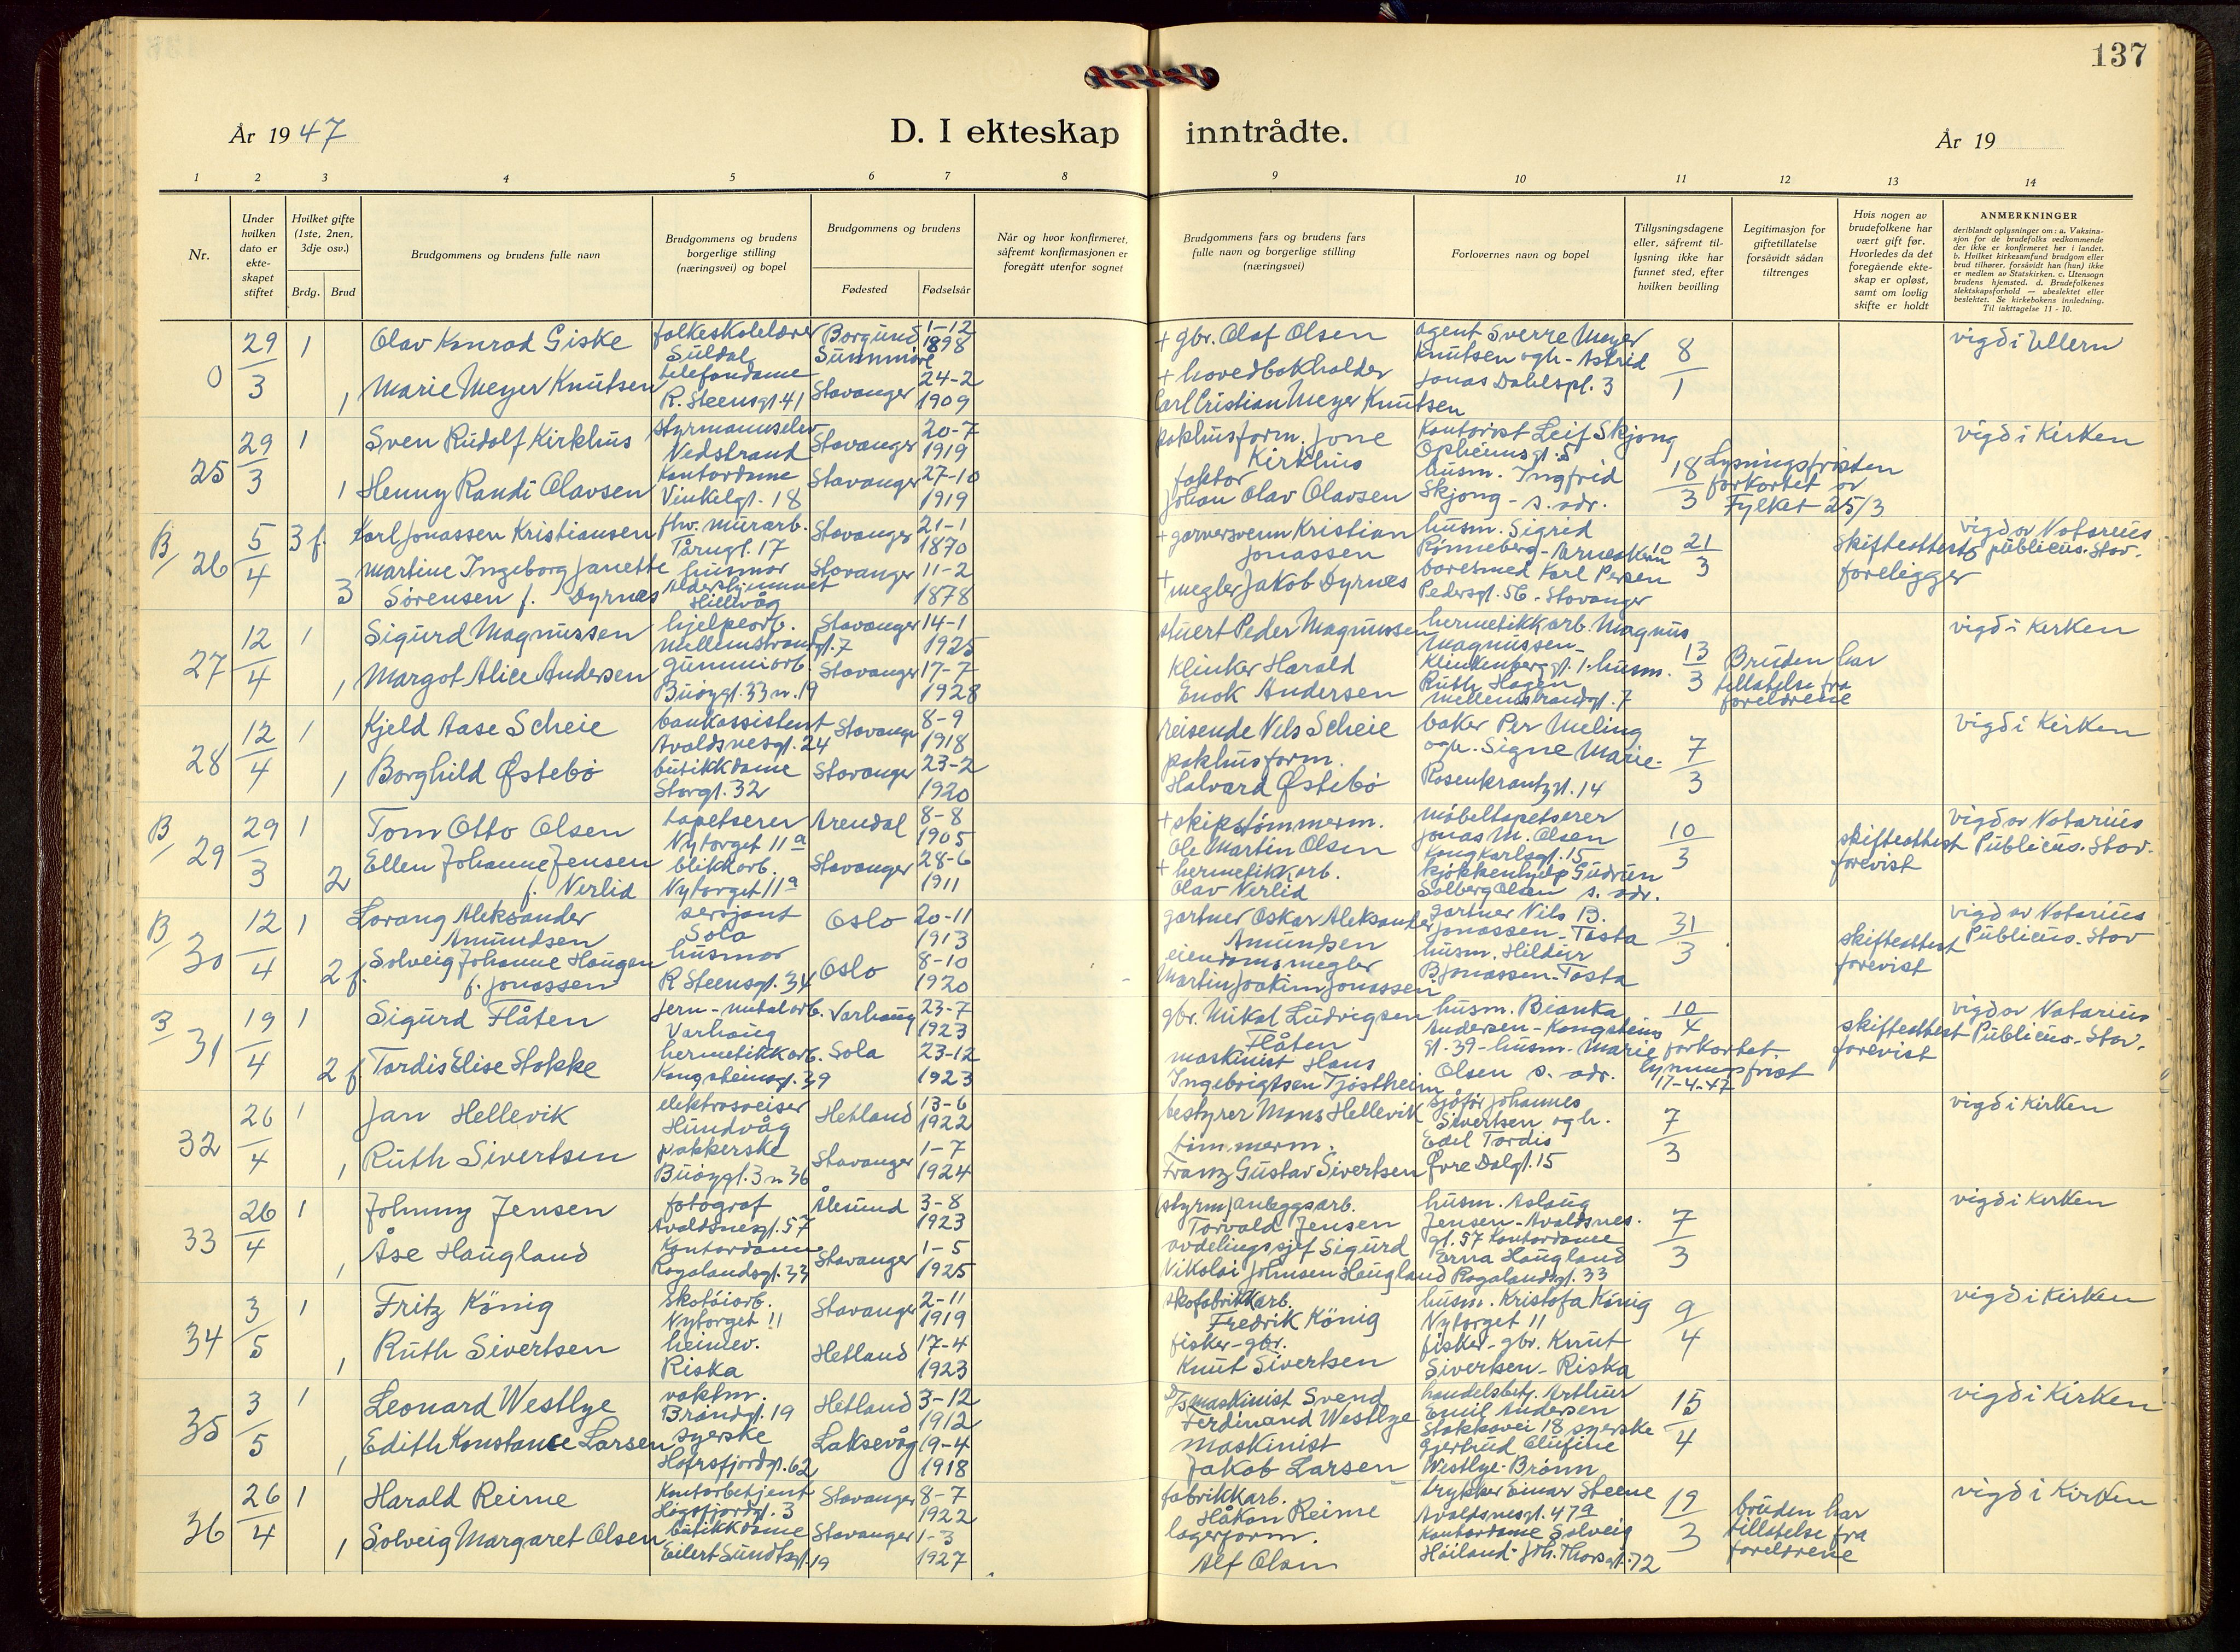 137
År 1947
D. I ekteskap inntrådte.
År 19
1 2 3 4 5 6 7 8 9 10 11 12 13 14
Nr.
Under hvilken dato er ekteskapet stiftet
Hvilket gifte (1ste, 2nen, 3dje osv.)
Brdg. Brud
Brudgommens og brudens fulle navn
Brudgommens og brudens borgerlige stilling (næringsvei) og bopel
Brudgommens og brudens
Fødested Fødselsår
Når og hvor konfirmeret, såfremt konfirmasjonen er foregått utenfor sognet
Brudgommens fars og brudens fars fulle navn og borgerlige stilling (næringsvei)
Forlovernes navn og bopel
Tillysningsdagene eller, såfremt tillysning ikke har funnet sted, efter hvilken bevilling
Legitimasjon for giftetillatelse forsåvidt sådan tiltrenges
Hvis nogen av brudefolkene har vært gift før. Hvorledes da det foregående ekteskap er opløst, samt om lovlig skifte er holdt
ANMERKNINGER
deriblandt oplysninger om: a. Vaksinasjon for de brudefolks vedkommende der ikke er konfirmeret her i landet. b. Hvilket kirkesamfund brudgom eller brud tilhører, forsåvidt han (hun) ikke er medlem av Statskirken. c. Utensogn brudens hjemsted. d. Brudefolkenes slektskapsforhold — ubeslektet eller beslektet. Se kirkebokens innledning. Til iakttagelse 11 - 10.
0 29/3 1 Olav Konrad Giske folkeskolelærer Suldal Borgund Sunnmøre 1-12 1898 + gbr. Olaf Olsen agent Sverre Meyer Knutsen ogh- Astrid Jonas Dahlspl. 3 8/1 vigd i Ullern
1 Marie Meyer Knutsen telefondame R. Steensgt. 41 Stavanger 24-2 1909 + hovedbokholder Carl Cristian Meyer Knutsen
25 29/3 1 Sven Rudolf Kirkhus styrmannselev Nedstrand Stavanger 20-7 1919 pakhusform. Jone Kirkhus Kontorist Leif Skjong Opheimsgt. 5 18/3 Lysningsfristen forkortet av Fylket 25/3 vigd i Kirken
1 Henny Randi Olavsen Kontordame Vinkelgt. 18 Stavanger 27-10 1919 faktor Johan Olav Olavsen husm. Ingfrid Skjong - s. adr.
B/ 26 5/4 3 f. Karl Jonassen Kristiansen fhv. murarb. Tårngt. 17 Stavanger 21-1 1870 + garversvenn Kristian Jonassen husm. Sigrid Rønneberg - 21/3 Skifteattester foreligger vigd av Notarius publicus. Stav.
3 Martine Ingeborg Janette Sørensen f. Dyrnes husmor Aldershjemmet Hillevåg Stavanger 11-2 1878 + megler Jakob Dyrnes Karl Persen Pedersgt. 56 - Stavanger
27 12/4 1 Sigurd Magnussen hjelpearb. Mellemstrandgt. 7 Stavanger 14-1 1925 stuert Peder Magnussen hermetikkarb. Magnus Magnussen - Klinkenberggt. 1. 13/3 Bruden har tillatelse fra foreldrene vigd i Kirken
1 Margot Alice Andersen gummiarb. Buøygt. 33 n. 19 Stavanger 17-7 1928 Klinker Harald Enok Andersen husm. Ruth Hagen Mellemstrandgt. 7
28 12/4 1 Kjeld Aase Scheie bankassistent Avaldsnesgt. 24 Stavanger 8-9 1918 reisende Nils Scheie baker Per Meling ogh. Signe Marie - Rosenkrantzgt. 14 7/3 vigd i Kirken
1 Borghild Østebø butikkdame Storgt. 32 Stavanger 23-2 1920 pakhusform. Halvard Østebø
B/ 29 29/3 1 Tom Otto Olsen tapetserer Nytorget 11a Arendal 8-8 1905 + skipstømmerm. Ole Martin Olsen møbeltapetserer Jonas M. Olsen Kong Karlsgt. 15 10/3 skifteattest forevist vigd av Notarius Publicus. Stav.
2 Ellen Johanne Jensen f. Nerlid blikkarb. Nytorget 11a Stavanger 28-6 1911 + hermetikkarb. Olav Nerlid kjøkkenhjelp Gudrun Solberg Olsen s. adr.
B/ 30 12/4 1 Lorang Aleksander Amundsen sersjant Sola Oslo 20-11 1913 gartner Oskar Aleksander Amundsen gartner Nils B. Jonassen - Tasta 31/3 skifteattest forevist vigd av Notarius Publicus. Stav
2 f. Solveig Johanne Haugen f. Jonassen husmor R Steensgt. 34 Oslo 8-10 1920 eiendomsmegler Martin Joakim Jonassen husm. Hildur B Jonassen - Tasta
B/ 31 19/4 1 Sigurd Flåten jern-metalarb. Varhaug Varhaug 23-7 1923 gbr. Mikal Ludvigsen Flåten husm. Bianka Andersen - Kongsteins gt. 39 - husm. Marie Olsen s. adr. 10/4 forkortet lysningsfrist 17-4-47 skifteattest forevist vigd av Notarius Publicus. Stav.
2 f. Tordis Elise Stokke hermetikkarb. Kongsteinsgt. 39 Sola 23-12 1923 maskinist Hans Ingebrigtsen Tjøstheim
32 26/4 1 Jan Hellevik elektrosveiser Hundvåg Hetland 13-6 1922 bestyrer Mons Hellevik sjøfør Johannes Sivertsen ogh. Edel Tordis Øvre Dalgt. 15 7/3 vigd i Kirken
1 Ruth Sivertsen pakkerske Buøygt. 3 n 36 Stavanger 1-7 1924 tømmerm. Franz Gustav Sivertsen
33 26/4 1 Johnny Jensen fotograf Avaldsnesgt. 57 Ålesund 3-8 1923 styrm/anleggsarb. Torvald Jensen husm. Aslaug Jensen - Avaldsnes. gt. 57 7/3 vigd i Kirken
1 Åse Haugland Kontordame Rogalandsgt. 33 Stavanger 1-5 1925 avdelingssjef Sigurd Nikolai Johnsen Haugland Kontordame Erna Haugland Rogalandsgt. 33
34 3/5 1 Fritz König skotøiarb. Nytorget 11 Stavanger 2-11 1919 skofabrikkarb. Fredrik König husm. Kristofa König Nytorget 11 9/4 vigd i Kirken
1 Ruth Sivertsen heimev. Riska Hetland 17-4 1923 fisker-gbr. Knut Sivertsen fisker-gbr. Knut Sivertsen - Riska
35 3/5 1 Leonard Westlye vaktm. Brøndgt. 19 Hetland 3-12 1912 maskinist Svend Ferdinand Westlye handelsbetj. Arthur Emil Andersen Stokkavei 18 15/4 vigd i Kirken
1 Edith Konstance Larsen syerske Hafrsfjordgt. 62 Laksevåg 19-4 1918 maskinist Jakob Larsen syerske Gjertrud Olufine Westlye -
36 26/4 1 Harald Reime Kontorbetjent Høgsfjordgt. 3 Stavanger 8-7 1922 fabrikkarb. Håkon Reime trykker Einar Steene Avaldsnesgt. 47a 19/3 bruden har tillatelse fra foreldrene vigd i Kirken
1 Solveig Margaret Olsen butikkdame Eilert Sundtsgt. 19 Stavanger 1-3 1927 lagerform. Alf Olsen Kontordame Solveig Høiland - Joh. Thorsgt. 72